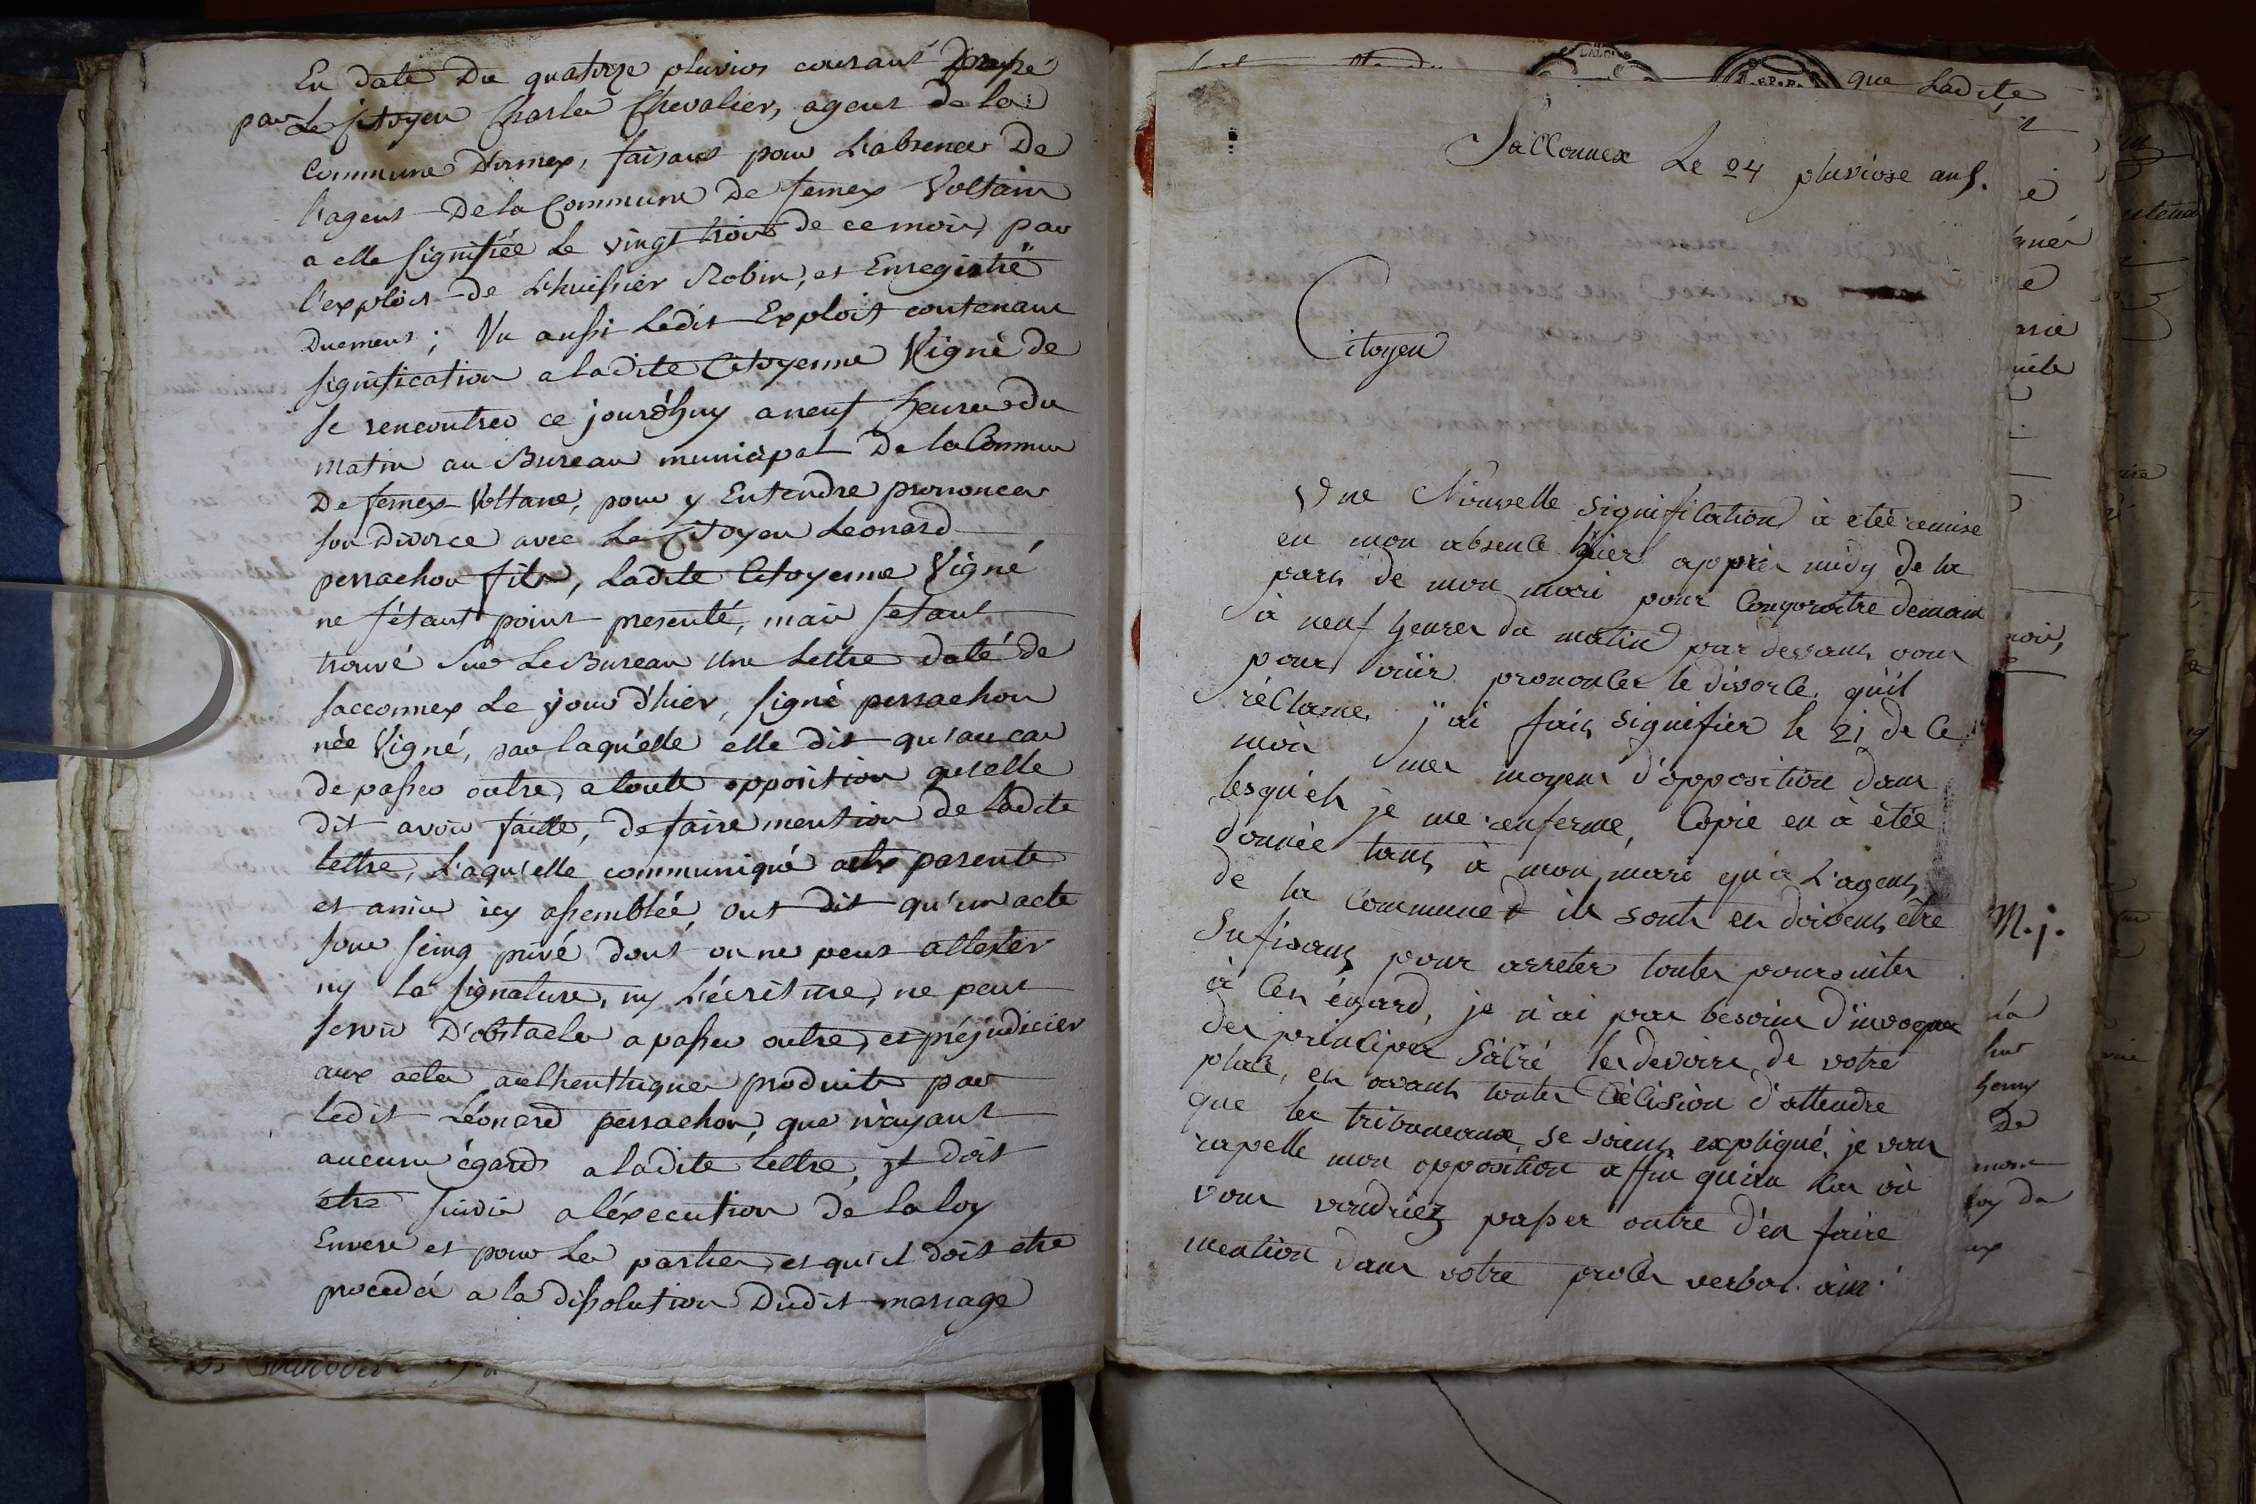 En date du quatorze pluvios courant dressé
par Le Citoyen Charles Chevalier, agent de la
Commune Dornex, faisant pour L'absence De
l'agent De la Commune De fernex Voltaire
a elle signifiée Le vingt trois de ce mois, par
l'exploit de L'huissier Robin, et Enregistré
Duement; Vu aussi Ledit Exploit contenant
signification a ladite Citoyenne Vigné de
se rencontrer ce jourd'huy a neuf heures du
matin au Bureau municipal De la Commun
De fernex Voltaire, pour y Entendre prononcer
son Divorce avec Le Citoyen Leonard
perrachon fils, Ladite Citoyenne Vigné
ne s'étant point presenté, mais s'etant
trouvé sur Le Bureau Une Lettre daté de
sacconnex Le jour d'hier, signé perrachon
née Vigné, par laqu'elle elle dit qu'au cas
de passer outre, a toute opposition qu'elle
dit avoir faitte, de faire mention de ladite
lettre, L'aqu'elle communiqué aux parents
et amis icy assemblée, ont dit qu'un acte
sous seing privé dont on ne peut attester
ny la signature, ny L'écriture, ne peut
servir D'obstacle a passer outre, et préjudicier
aux actes authentiques produits par
ledit Léonard perrachon, que n'ayant
aucun égard a ladite lettre, il doit
etre suivie a l'éxecution de la loy
Envers et pour Les parties, et qu'il doit etre
procedé a la dissolution Dudit mariage
que Ladite
Sacconnex Le 24 pluviose an 5.
Citoyen
Une Nouvelle signification à etée remise
en mon absence hier apprès midy de la
part de mon mari pour Comparoitre demain
à neuf heures du matin par devant vous
pour voiir prononcer le divorce qu'il
réclame, j'ai fait signifier le 21 de ce
mois mes moyens d'opposition dans
lesqu'els je me renferme, Copie en à étée
donnée tant à mon mari qu'à L'agent
de la Commune ils sont en doivent être
sufisant pour arreter toutes poursuites
à cet égard, je n'ai pas besoin d'invoquer
des principes sacré les devoirs de votre
place, et avant toutes décision d'attendre
que les tribunaux se soient expliqué, je vous
rapelle mon opposition affin qu'au cas où
vous voudriez passer outre d'en faire
mention dans votre procès verbal. ains.
M. j.